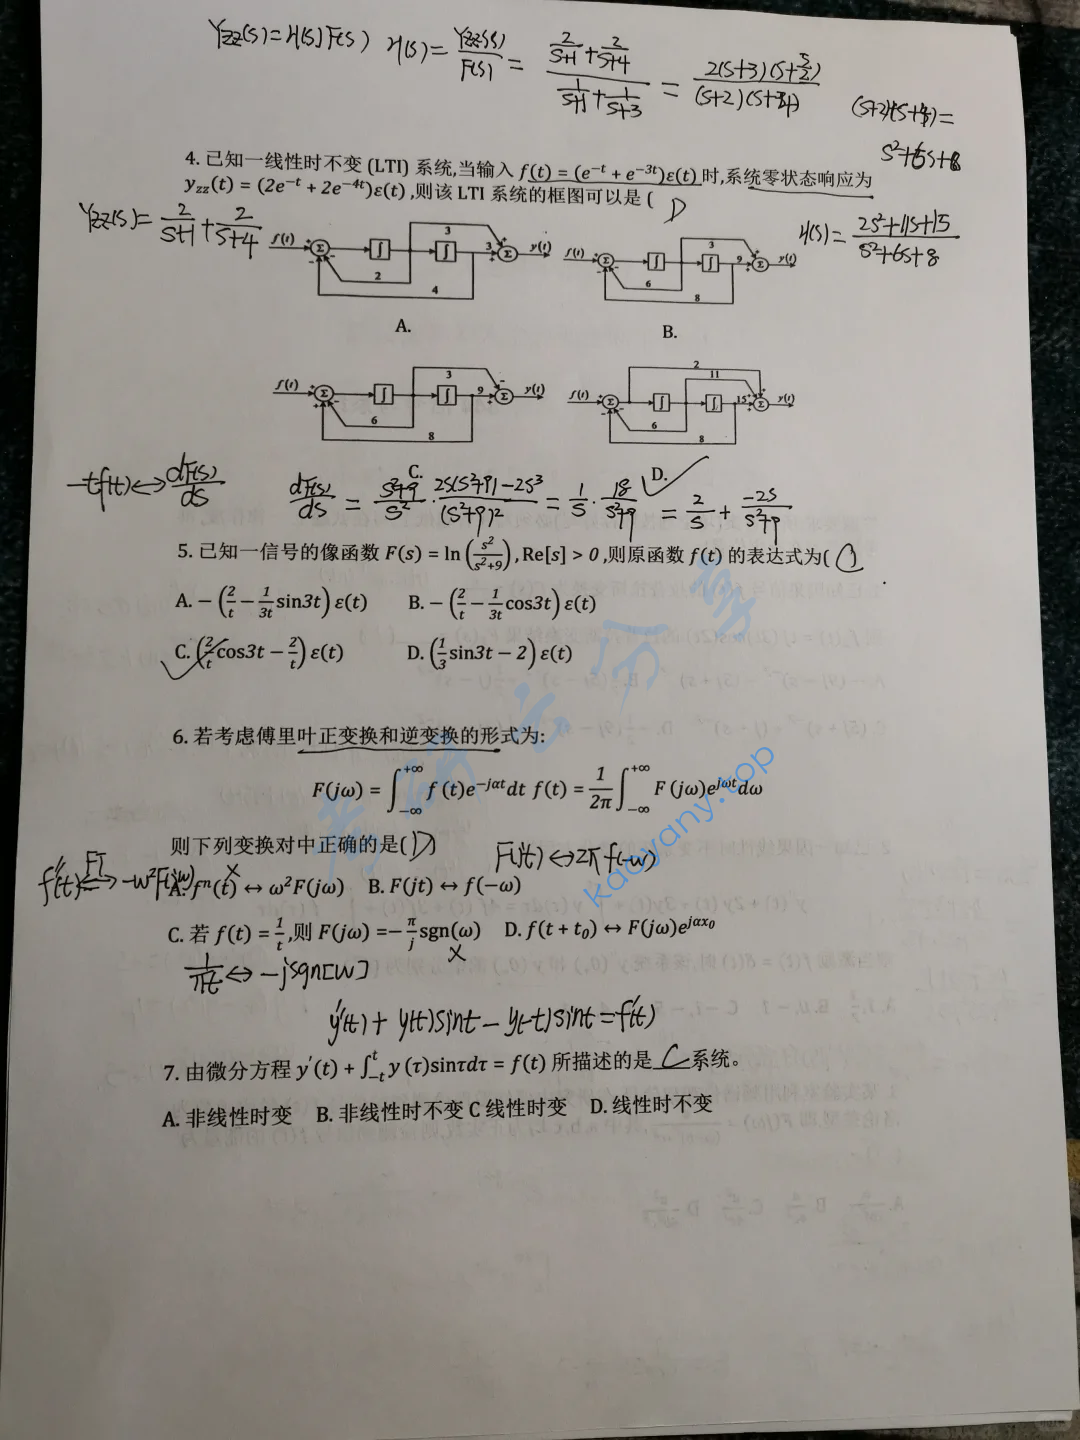 Yzz(s)=H(s)F(s) H(s)=Yzz(s)/F(s) = (2/(s+1)+2/(s+4))/(1/(s+1)+1/(s+3)) = 2(s+3)(s+5/2)/((s+2)(s+4))
(s+2)(s+4)=
s²+6s+8
4. 已知一线性时不变 (LTI) 系统,当输入 f(t) = (e⁻ᵗ + e⁻³ᵗ)ε(t) 时,系统零状态响应为
y_zz(t) = (2e⁻ᵗ + 2e⁻⁴ᵗ)ε(t) ,则该 LTI 系统的框图可以是 ( D
Yzz(s)= 2/(s+1) + 2/(s+4)
H(s)= (2s²+11s+15)/(s²+6s+8)
f(t) Σ ∫ 3 ∫ 3 Σ y(t)
2
4
A.
f(t) Σ ∫ 3 ∫ 9 Σ y(t)
6
8
B.
f(t) Σ ∫ 3 ∫ 9 Σ y(t)
6
8
C.
2
11
f(t) Σ ∫ ∫ 15 Σ y(t)
6
8
D.
-tf(t)↔dF(s)/ds
dF(s)/ds = (s²+9)/s² · (2s(s²+9)-2s³)/(s²+9)² = 1/s · 18/(s²+9) = 2/s + -2s/(s²+9)
5. 已知一信号的像函数 F(s) = ln (s²/(s²+9)) , Re[s] > 0 ,则原函数 f(t) 的表达式为( )
A. − (2/t − 1/3t sin3t) ε(t) B. − (2/t − 1/3t cos3t) ε(t)
C. (2/t cos3t − 2/t) ε(t) D. (1/3 sin3t − 2) ε(t)
6. 若考虑傅里叶正变换和逆变换的形式为:
F(jω) = ∫₋∞⁺∞ f (t)e^(−jαt)dt f(t) = 1/2π ∫₋∞⁺∞ F (jω)e^(jωt)dω
则下列变换对中正确的是( D )
F(jt)↔2πf(-w)
f''(t) FT↔ -w²F(jw)
A. fⁿ(t) ↔ ω²F(jω) B. F(jt) ↔ f(−ω)
C. 若 f(t) = 1/t ,则 F(jω) =− π/j sgn(ω) D. f(t + t₀) ↔ F(jω)e^(jαx₀)
1/πt ↔ -jsgn[w]
y''(t) + y(t)sint - y(-t)sint = f'(t)
7. 由微分方程 y′(t) + ∫₋ₜᵗ y (τ)sinτdτ = f(t) 所描述的是 C 系统。
A. 非线性时变 B. 非线性时不变 C 线性时变 D. 线性时不变
kaoyany.top